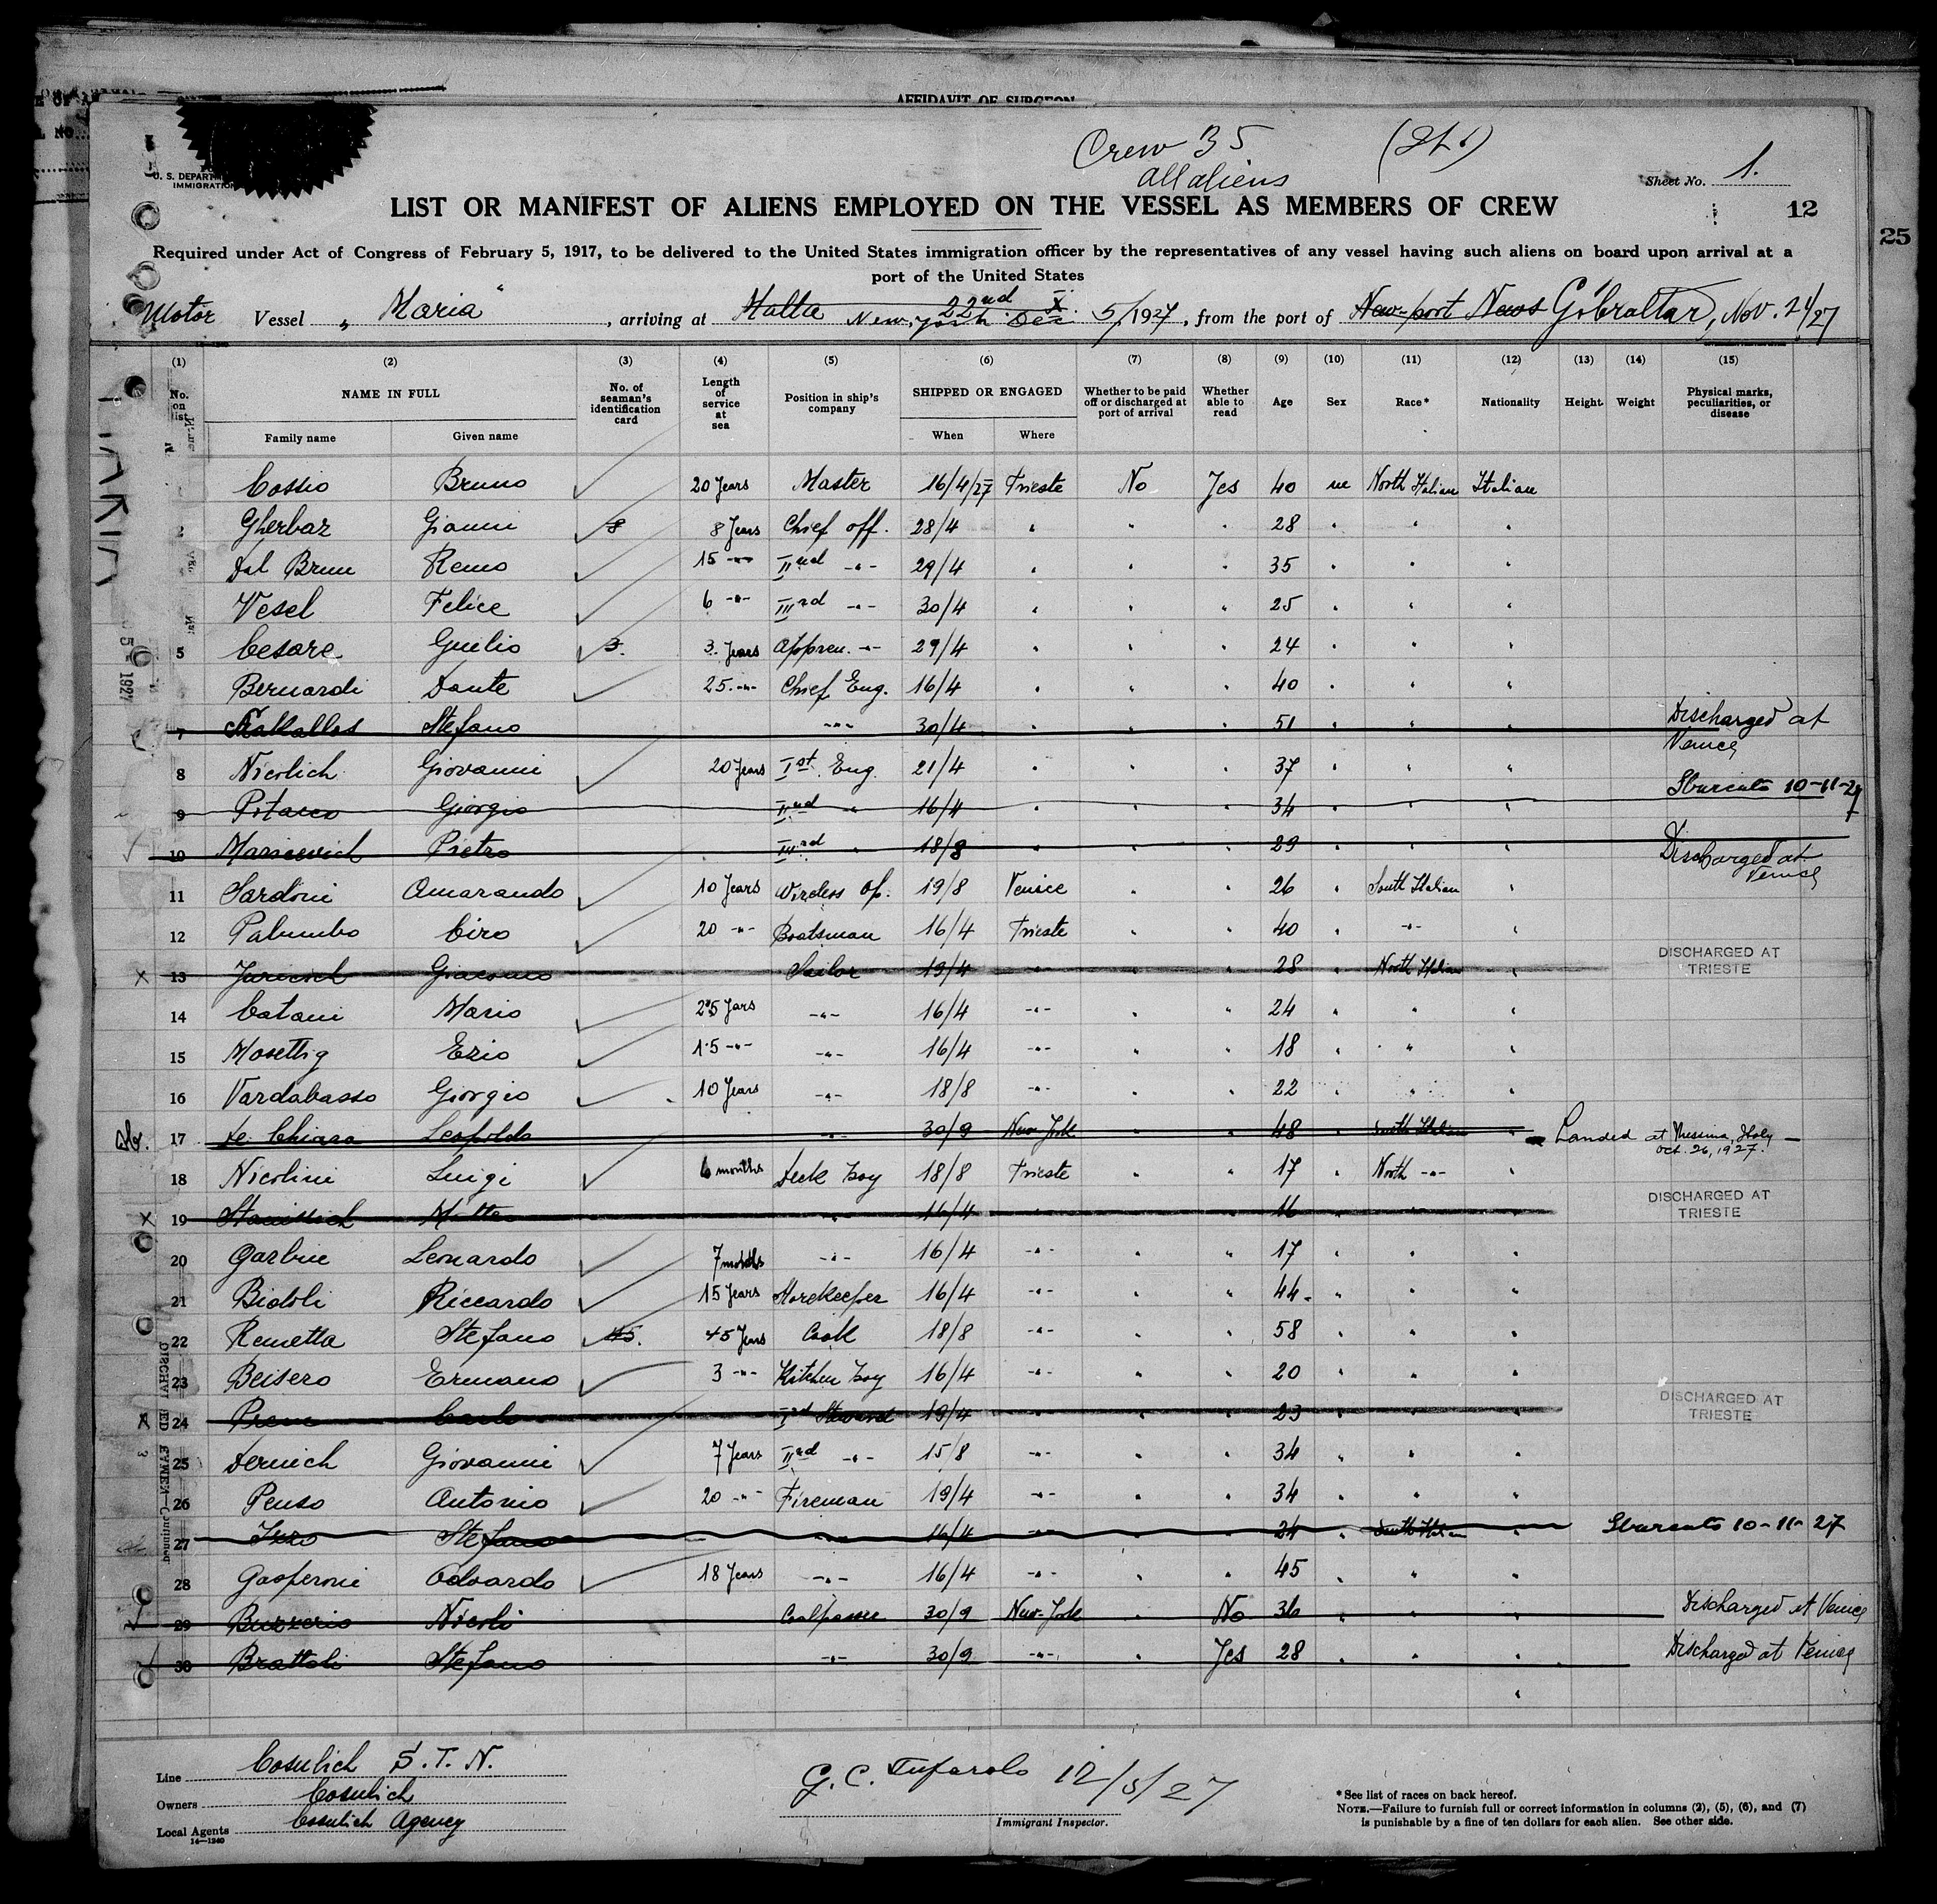 AFFIDAVIT OF SURGEON
Crew 35
all aliens
U. S. DEPARTM
IMMIGRATION
Sheet No. 1.
LIST OR MANIFEST OF ALIENS EMPLOYED ON THE VESSEL AS MEMBERS OF CREW
12
25
Required under Act of Congress of February 5, 1917, to be delivered to the United States immigration officer by the representatives of any vessel having such aliens on board upon arrival at a
port of the United States
Motor Vessel „ Maria " , arriving at Malta 22nd X New-York Dec. 5/1927, from the port of New-port News Gibraltar, Nov. 21/27
(1) (2) (3) (4) (5) (6) (7) (8) (9) (10) (11) (12) (13) (14) (15)
No. on list NAME IN FULL No. of seaman's identification card Length of service at sea Position in ship's company SHIPPED OR ENGAGED Whether to be paid off or discharged at port of arrival Whether able to read Age Sex Race* Nationality Height Weight Physical marks, peculiarities, or disease
Family name Given name When Where
Cossio Bruno 20 Years Master 16/4/27 Trieste No Yes 40 m North Italian Italian
2 Gherbaz Gianni 8 8 Years Chief off. 28/4 " " " 28 " " "
Dal Brun Remo 15 -"- IInd -"- 29/4 " " " 35 " " "
Vesel Felice 6 -"- IIIrd -"- 30/4 " " " 25 " " "
5 Cesare Guilio 3. 3. Years Appren. -"- 29/4 " " " 24 " " "
Bernardi Dante 25 -"- Chief Eng. 16/4 " " " 40 " " "
7 Stefano -"- 30/4 " " " 51 " " " Discharged at Venice
8 Nicolich Giovanni 20 Years Ist Eng. 21/4 " " " 37 " " "
9 Pitacco Giorgio IInd " 16/4 " " " 34 " " " Sbarcato 10-11-27
10 Marsevich Pietro IIIrd " 18/8 " " " 29 " " " Discharged at Venice
11 Sardoni Amarando 10 Years Wireless op. 19/8 Venice " " 26 " South Italian "
12 Palumbo Ciro 20 -"- Boatsman 16/4 Trieste " " 40 " -"- "
13 Giacomo Sailor 19/4 " " " 28 " North Italian " DISCHARGED AT TRIESTE
14 Catani Mario 25 Years -"- 16/4 -"- " " 24 " " "
15 Mosettig Ezio 1.5 -"- -"- 16/4 -"- " " 18 " " "
16 Vardabasso Giorgio 10 Years -"- 18/8 -"- " " 22 " " "
17 De Chiara Leopoldo -"- 30/9 New-York " " 48 " South Italian " Landed at Messina, Italy Oct. 26, 1927.
18 Nicolini Luigi 6 months Deck boy 18/8 Trieste " " 17 " North -"- "
19 Stanissich Matteo -"- 16/4 " " " 16 " " " DISCHARGED AT TRIESTE
20 Garbin Leonardo 7 months -"- 16/4 -"- " " 17 " " "
21 Bidoli Riccardo 15 Years Storekeeper 16/4 -"- " " 44 " " "
22 Remetta Stefano 45. 45 Years Cook 18/8 -"- " " 58 " " "
23 Beisero Ermano 3 -"- Kitchen boy 16/4 -"- " " 20 " " "
24 Carlo Steward 19/4 -"- " " 23 " " " DISCHARGED AT TRIESTE
25 Dernich Giovanni 7 Years IInd -"- 15/8 -"- " " 34 " " "
26 Penso Antonio 20 -"- Fireman 19/4 -"- " " 34 " " "
27 Stefano -"- 16/4 -"- " " 24 " South Italian " Sbarcato 10-11-27
28 Gasperini Edoardo 18 Years -"- 16/4 -"- " " 45 " " "
29 Buzzerio Nicoli Coalpasser 30/9 New-York " No 36 " " " Discharged at Venice
30 Brattoli Stefano -"- 30/9 -"- " Yes 28 " " " Discharged at Venice
Line Cosulich S. T. N.
Owners Cosulich
Local Agents Cosulich Agency
14—1240
G. C. Tufarolo 12/5/27
Immigrant Inspector.
* See list of races on back hereof.
NOTE.—Failure to furnish full or correct information in columns (2), (5), (6), and (7)
is punishable by a fine of ten dollars for each alien. See other side.